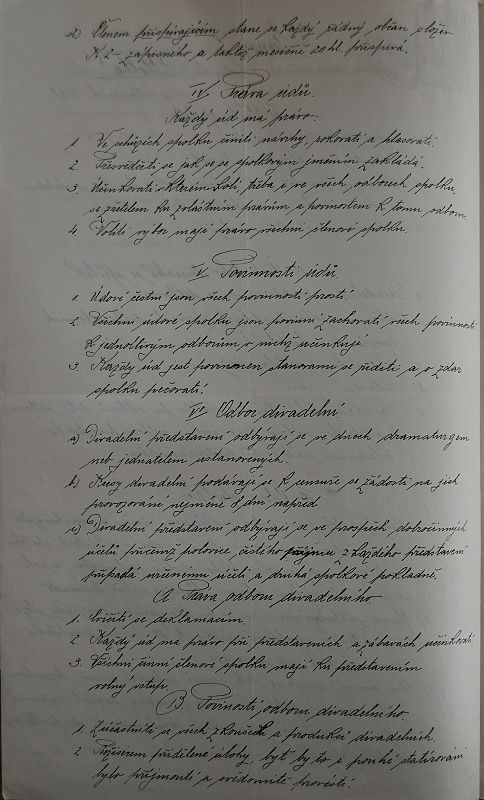 d) Členem přispívajícím stane se každý řádný občan složiv
K 2- zápisného a taktéž měsíčně 20 hl příspěvu.
IV Práva údů.
Každý úd má právo:
1. Ve schůzích spolku činiti návrhy, rokovati a hlasovati.
2. Přesvědčiti se jak se se spolkovým jměním zakládá.
3. Účinkovati v kterémkoli, třeba i ve všech odborech spolku,
se zřetelem ku zvláštním právům a povinnostem k tomu odboru.
4. Voliti výbor mají právo všichni členové spolku.
V Povinnosti údů.
1. Údové čestní jsou všech povinností prosti.
2. Všichni údové spolku jsou povinni zachovati všech povinností
k jednotlivým odborům v nichž účinkuje
3. Každý úd jest povinen stanovami se říditi a o zdar
spolku pečovati.
VI Odbor divadelní
a) Divadelní představení odbývají se ve dnech dramaturgem
neb jednatelem ustanovených.
b) Kusy divadelní podávají se k censuře se žádostí na jich
provozování nejméně 8 dní napřed
c) Divadelní představení odbývají se ve prospěch dobročinných
účelů přičemž polovice, čistého příjmu z každého představení
připadá určenému účeli a druhá spolkové pokladně.
A. Práva odboru divadelního
1. Cvičiti se deklamacím
2. Každý úd má právo při představeních a zábavách účinkovati
3. Všichni činní členové spolku mají ku představením
volný vstup
B. Povinosti odboru divadelního
1. Zúčastniti se všech zkoušek a produkcí divadelních
2. Režiserem přidělené úlohy, byť by to i pouhé statirování
bylo přijmouti a svědomitě provésti.